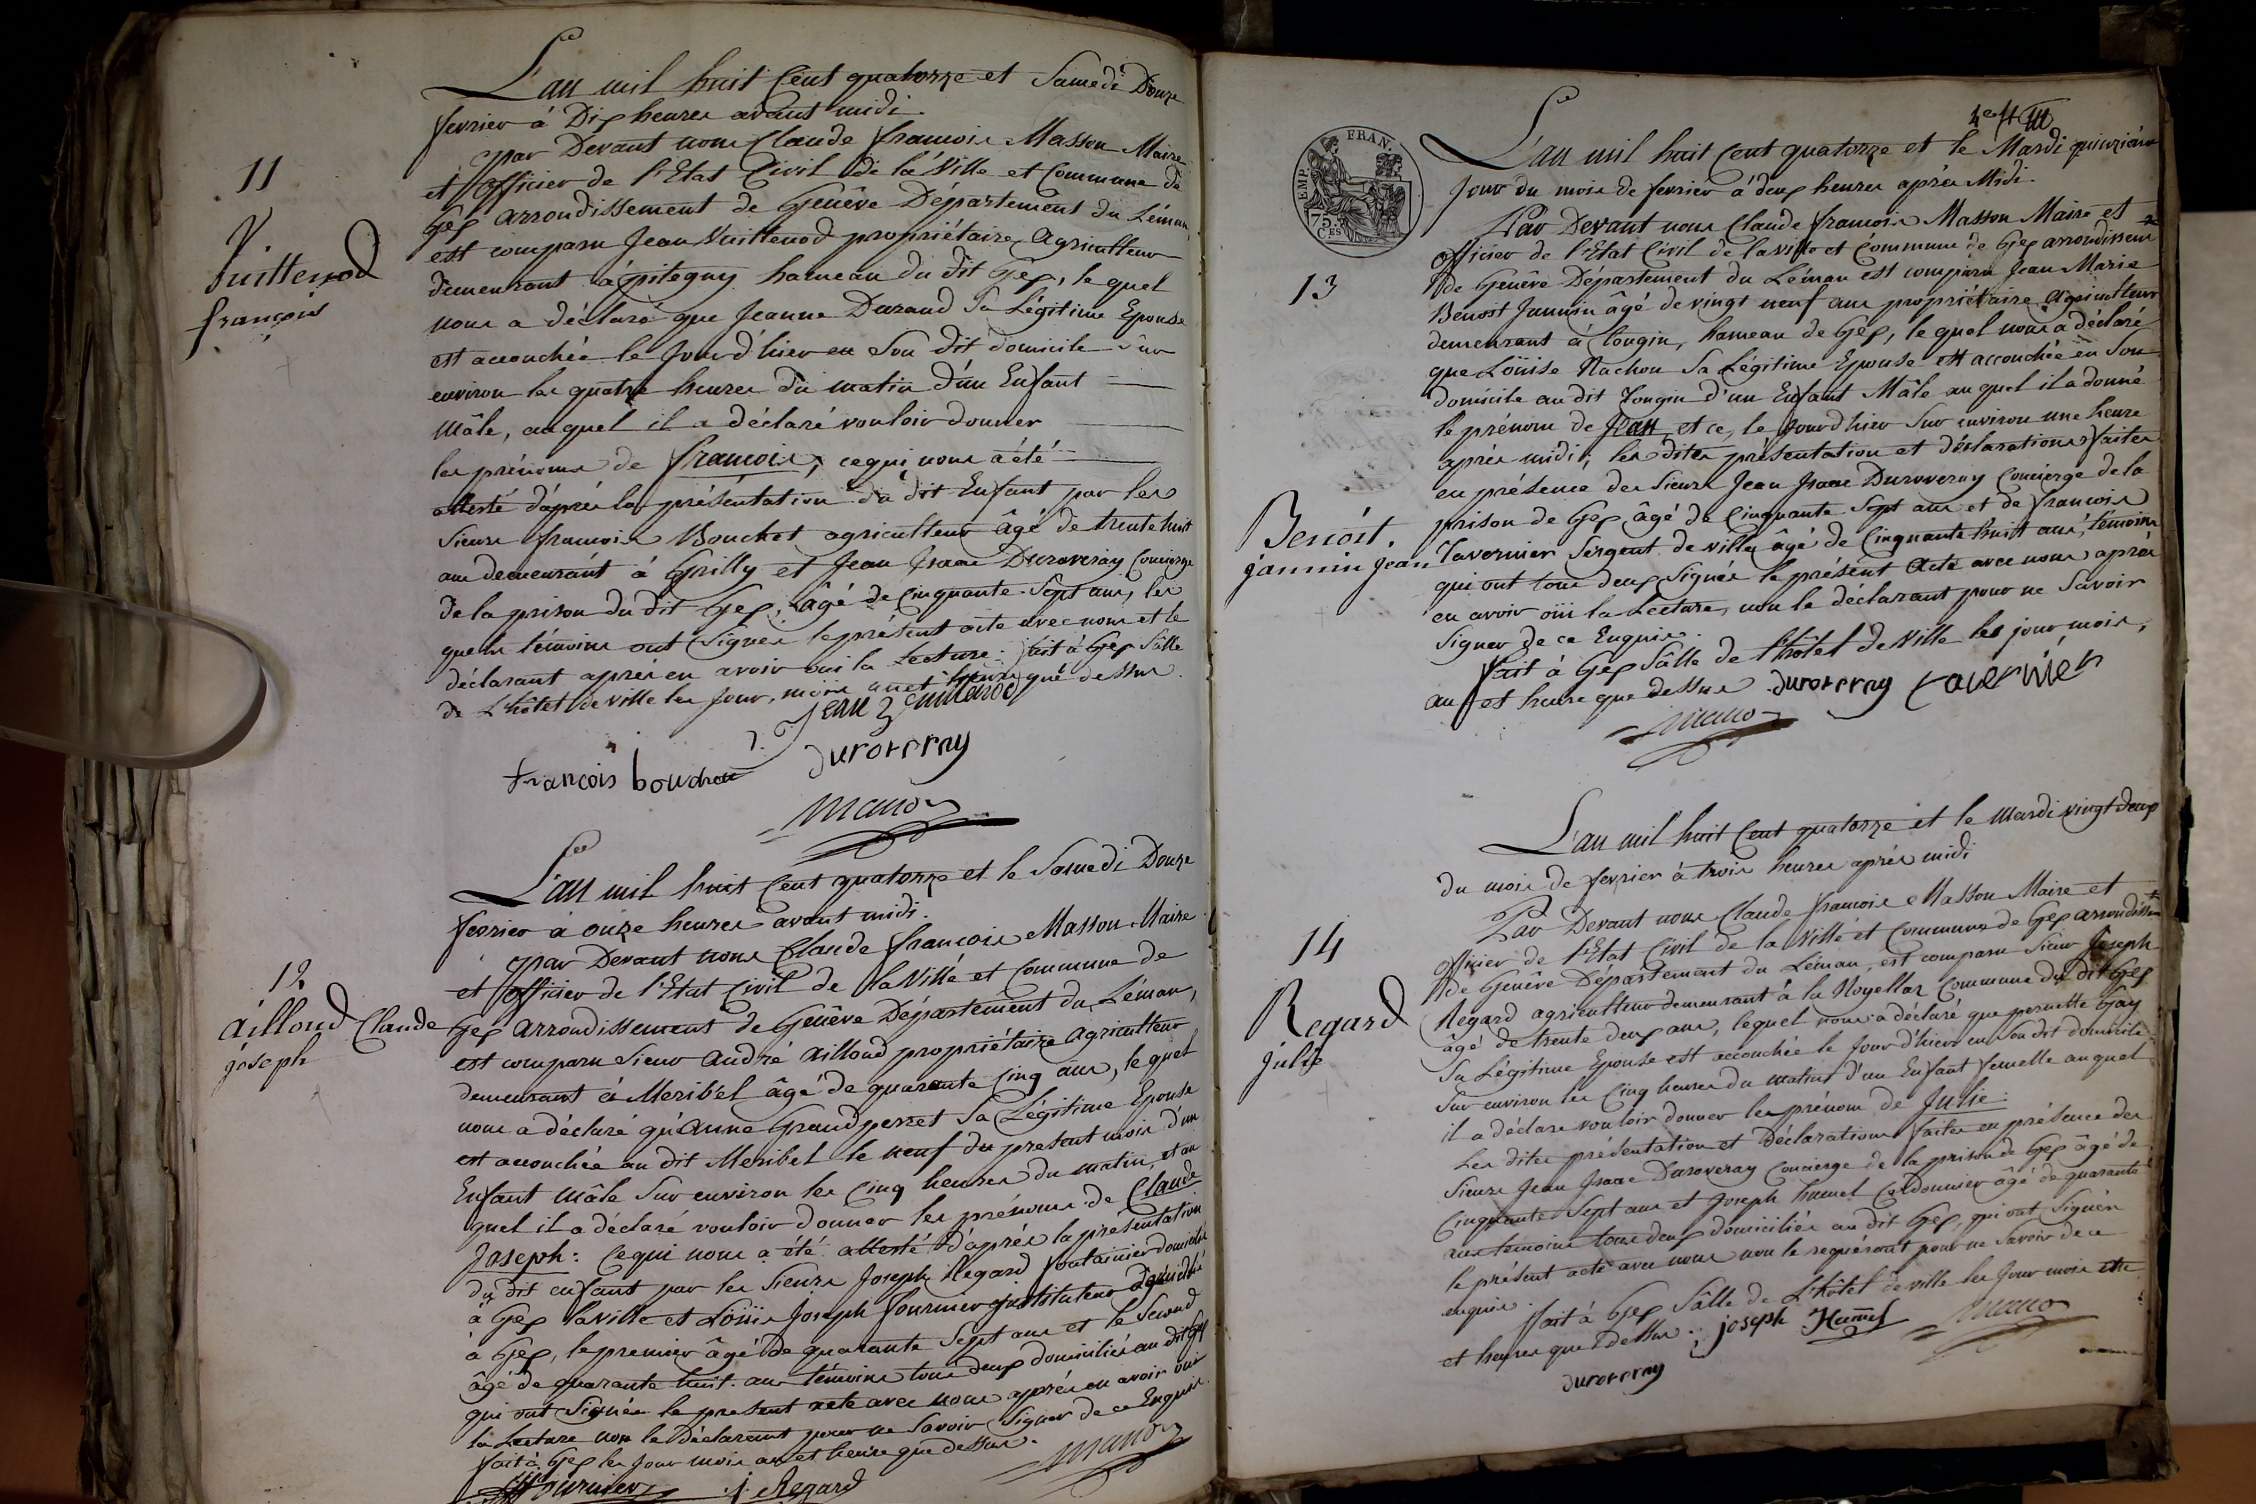 L'an mil huit Cent quatorze et Samedi Douze
fevrier à Dix heures avant midi.
par Devant nous Claude françois Masson Maire
et officier de l'Etat Civil de la Ville et Commune de
Gex arrondissement de Genêve Département du Léman,
est comparu Jean Vuittenod propriétaire Agriculteur
demeurant à pitegny hameau du dit Gex, le quel
nous a déclaré que Jeanne Durand Sa Légitime Epouse
est accouchée le Jour d'hier en Son dit domicile Sur
environ les quatre heures du matin d'un Enfant
Mâle, au quel il a déclaré vouloir donner
les prénoms de françois, ce qui nous a été
attesté d'après la présentation du dit Enfant par les
Sieurs françois Bouchet agriculteur âgé de trente huit
ans demeurant à Grilly et Jean Isaac Duroveray Concierge
de la prison du dit Gex, âgé de Cinquante Sept ans, les
quels témoins ont Signés le présent acte avec nous et le
déclarant après en avoir oui la Lecture. fait à Gex Sâlle
de L'hôtel de ville les Jour, mois an et heure que dessus.
11
V.
Vuittenod
françois
Jean
françois
duroveray
L'an mil huit Cent quatorze et le Samedi Douze
fevrier à onze heures avant midi.
par Devant nous Claude françois Masson Maire
et officier de l'Etat Civil de la Ville et Commune de
Gex arrondissement de Genêve Département du Léman,
est comparu Sieur André Ailloud propriétaire Agriculteur
demeurant à Meribel âgé de quarante Cinq ans, le quel
nous a déclaré qu'Anne Grandperret Sa Légitime Epouse
est accouchée au dit Meribel le neuf du present mois d'un
Enfant Mâle Sur environ les Cinq heures du matin, et au
quel il a déclaré vouloir donner les prénoms de Claude
Joseph: Ce qui nous a été attesté d'après la présentation
du dit enfant par les Sieurs Joseph Regard fontainier domicilié
à Gex la ville et Loüis Joseph fournier instituteur domicilié
à Gex, le premier âgé de quarante Sept ans et le Second
âgé de quarante huit ans témoins tous deux domiciliés au dit Gex
qui ont Signés le present acte avec nous après en avoir oui
la Lecture non le Déclarant pour ne Savoir Signer de ce Enquis.
fait à Gex les Jour mois an et heure que dessus.
12
Ailloud Claude
joseph
fournier J. Regard
L'an mil huit Cent quatorze et le Mardi quinzième
Jour du mois de fevrier à deux heures après Midi.
Par Devant nous Claude françois Masson Maire et
officier de l'Etat Civil de la ville et Commune de Gex arrondissemt
de Genêve Département du Léman est comparu Jean Marie
Benoit Jannin âgé de vingt neuf ans propriétaire Agriculteur
demeurant à Tougin, hameau de Gex, le quel nous a déclaré
que Loüise Nachon Sa Légitime Epouse est accouchée en Son
domicile au dit Tougin d'un Enfant Mâle au quel il a donné
le prénom de Jean et ce, le Jour d'hier Sur environ une heure
après midi; les dites présentation et déclarations faites
en présence des Sieurs Jean Isaac Duroveray Concierge de la
prison de Gex âgé de Cinquante Sept ans et de françois
Tavernier Sergent de ville âgé de Cinquante huit ans, témoins
qui ont tous deux Signés le présent Acte avec nous après
en avoir oüi la Lecture, non le déclarant pour ne Savoir
Signer de ce Enquis.
fait à Gex Sâlle de l'hôtel de Ville les jour mois,
an et heure que dessus duroveray tavernier
EMP. FRAN.
75
CES
13
Benoit.
jannin jean
L'an mil huit Cent quatorze et le Mardi vingt deux
du mois de fevrier à trois heures après midi
Par Devant nous Claude françois Masson Maire et
officier de l'Etat Civil de la Ville et Commune de Gex arrondissemt
de Genêve Département du Léman, est comparu Sieur Joseph
Regard agriculteur demeurant à la Commune du dit Gex
âgé de trente deux ans, lequel nous a déclaré que pernette Gay
Sa Légitime Epouse est accouchée le Jour d'hier en Son dit domicile
Sur environ les Cinq heures du matin d'un Enfant femelle au quel
il a déclaré vouloir donner les prénom de Julie.
Les dites présentation et Déclarations faites en présence des
Sieurs Jean Isaac Duroveray Concierge de la prison de Gex âgé de
Cinquante Sept ans et Joseph humel Cordonnier âgé de quarante
ans témoins tous deux domiciliés au dit Gex, qui ont Signés
le présent acte avec nous non le requérant pour ne Savoir de ce
enquis. fait à Gex Sâlle de L'hôtel de ville les Jour mois an
et heures que dessus. joseph Humel
duroveray
14
Regard
julie